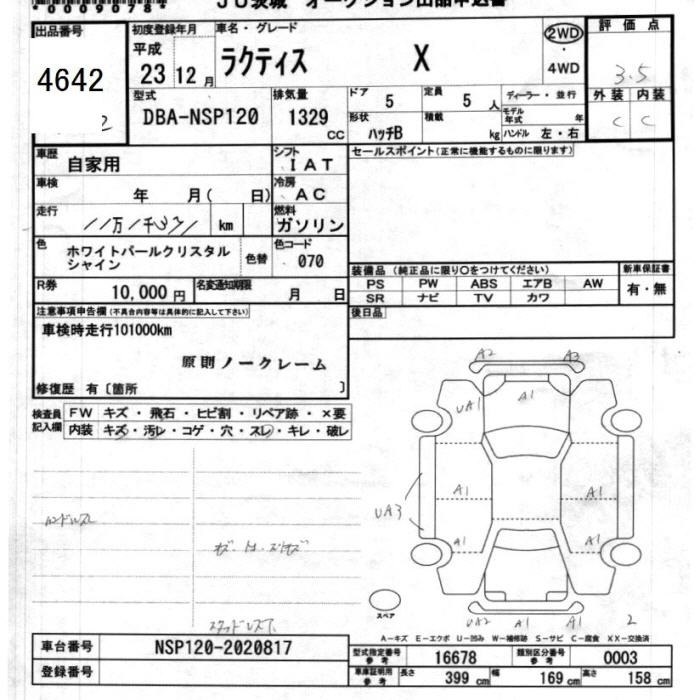 00090787
JU茨城 オークション出品申込書
出品番号 初度登録年月 車名・グレード 評価点
4642 平成 23年 12月 ラクティス X 2WD 4WD 3.5
型式 排気量 ドア 5 定員 5人 ディーラー・並行 外装 内装
DBA-NSP120 1329cc 形状 ハッチB 積載 kg モデル年式 年 ハンドル 左・右 C C
車歴 自家用 シフト IAT セールスポイント(正常に機能するものに限ります)
車検 年 月( 日) 冷房 AC
走行 km 燃料 ガソリン
色 ホワイトパールクリスタルシャイン 色替 色コード 070
装備品(純正品に限り○をつけてください) 新車保証書
R券 10,000円 名変通知期限 月 日 PS PW ABS エアB AW 有・無
SR ナビ TV カワ
注意事項申告欄(不具合内容等は具体的に記入して下さい) 後日品
車検時走行101000km
原則ノークレーム
修復歴 有〔箇所 〕
検査員記入欄 FW キズ・飛石・ヒビ割・リペア跡・×要
内装 キズ・汚レ・コゲ・穴・スレ・キレ・破レ
A2 A3
UA1 A1
A1 A1
UA3
A1 A1
スペア
UA2 A1 A1 2
A-キズ E-エクボ U-凹み W-補修跡 S-サビ C-腐食 XX-交換済
車台番号 NSP120-2020817 型式指定番号 参考 16678 類別区分番号 参考 0003
登録番号 車庫証明用 参考 長さ 399cm 幅 169cm 高さ 158cm